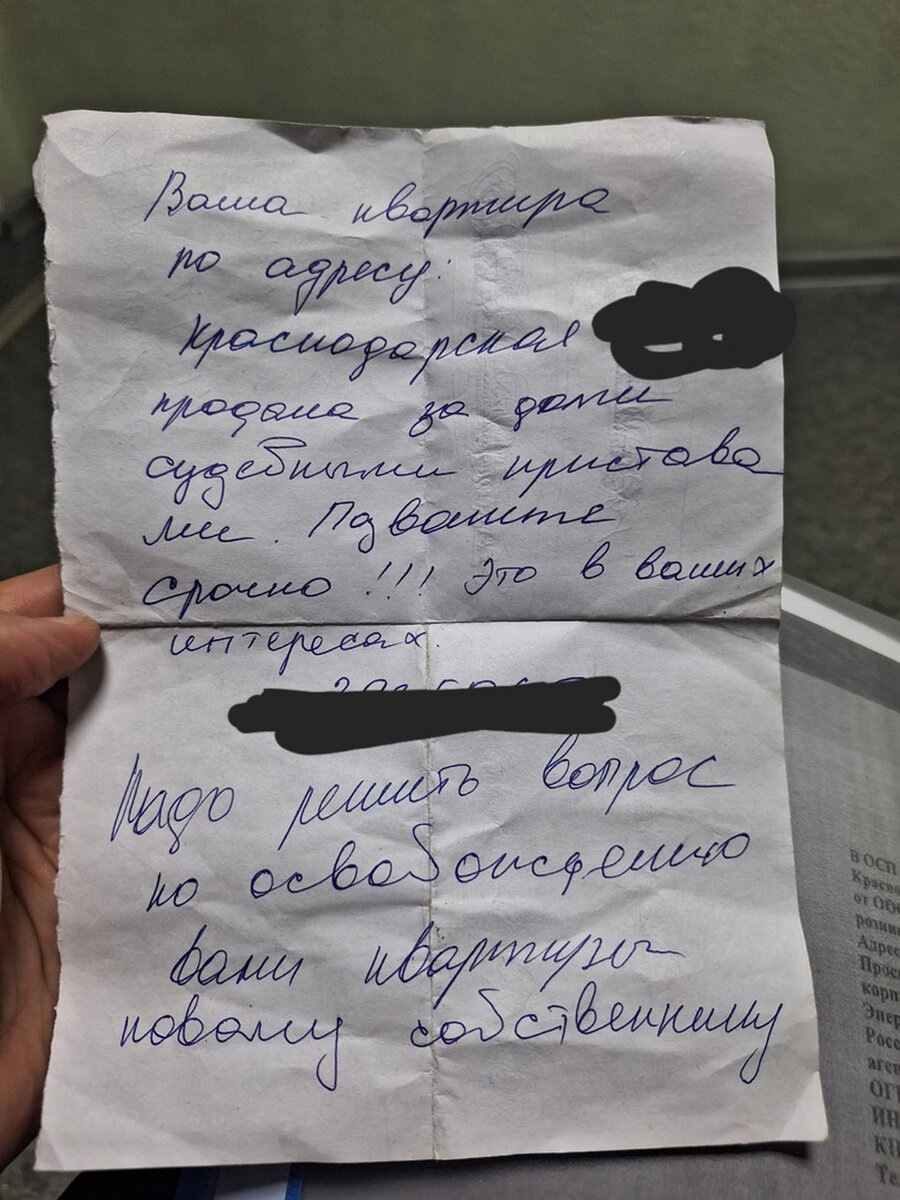 Ваша квартира
по адресу:
Краснодарская
продана за долги
судебными пристава
ми. Позвоните
срочно!!! Это в ваших
интересах
Надо решить вопрос
по освобождению
вами квартиры
новому собственнику
В ОСП
Красно
от Об
розни
Адрес
Прос
корп
Энер
Росс
аген
ОГ
ИН
КП
Те